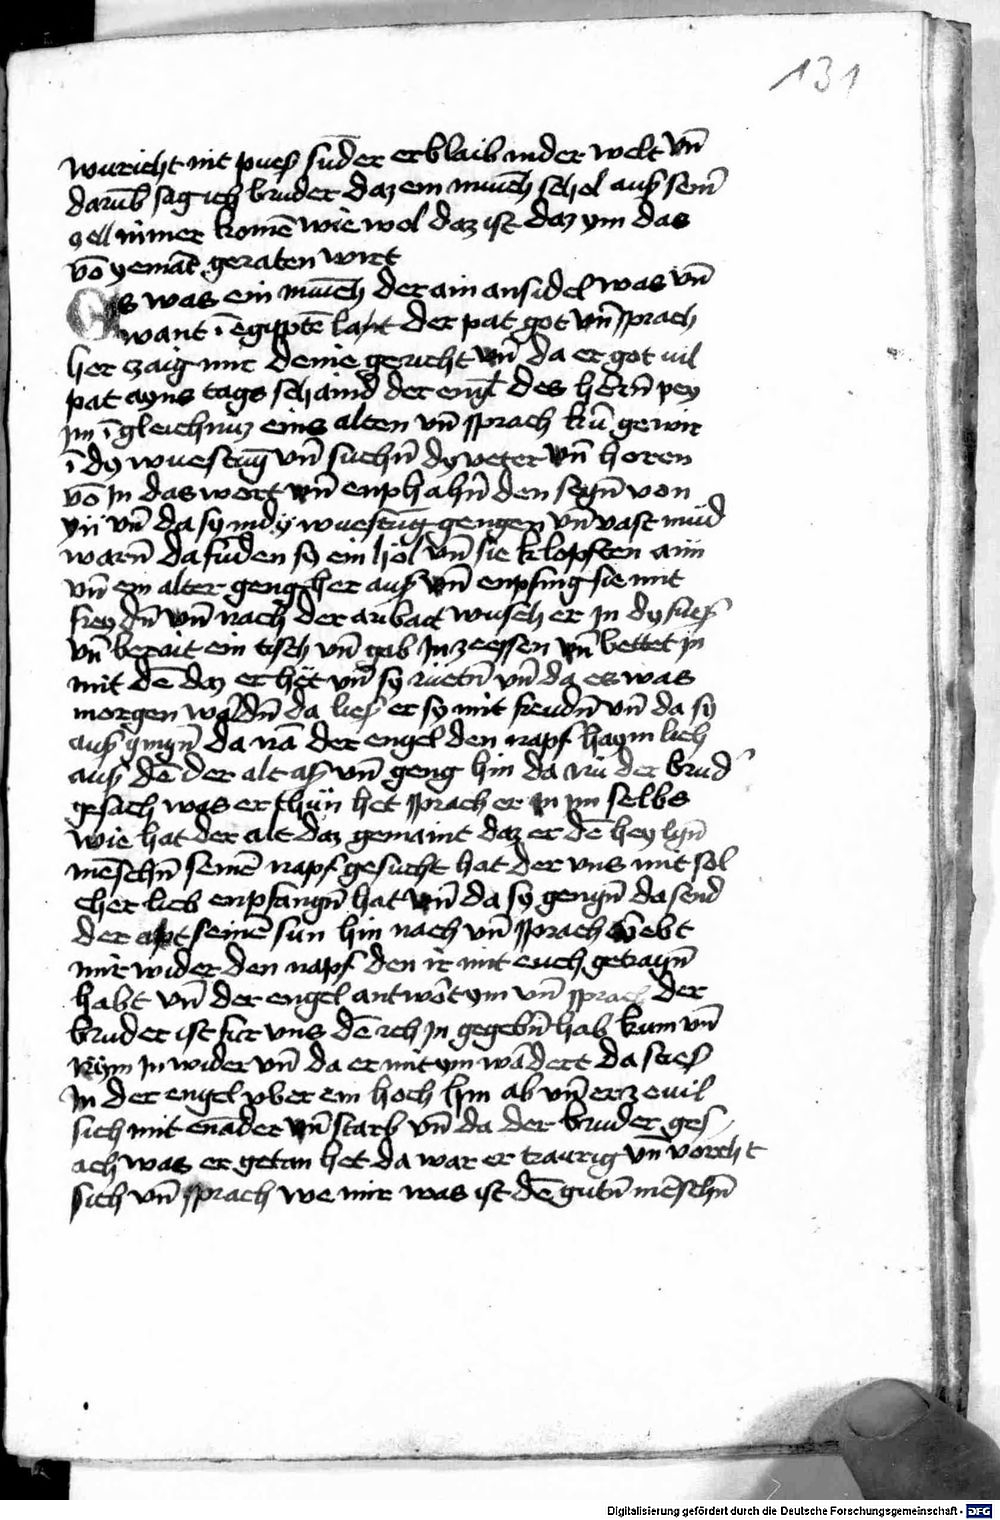 131
wuricht nit pueß sunder er blaib in der welt vn̄
darūb sag ich bruder daz ein mūch schol auß seim̄
zell nimer komē wie wol daz ist daz ym das
vō yemāt geraten wirt
Es was ein mūch der ain ansidel was vn̄
want ī egiptē lant der pat got vn̄ sprach
her czaig mir deine gericht vn̄ da er got vil
pat ayns tags schaind der engl des hern̄ pey
im ī gleichnuz eins alten vn̄ sprach kū gewir
ī dy wuestūg vn̄ suchn̄ dy veter vn̄ horen
vō in das wort vn̄ enphahn̄ den segn̄ von
yn̄ vn̄ da sy in dy wuestūg gengen vn̄ vast mud
warn̄ da funden sy ein hol vn̄ sie klopften ann
vn̄ ein alter geng her auß vn̄ enpfing sie mit
freydn̄ vn̄ nach der aribait wusch er in dy fueß
vn̄ berait ein tisch vn̄ gab in zeessen vn̄ bettet in
mit dē daz er het vn̄ sy rüetn̄ vn̄ da es was
morgen wardn̄ da ließ er sy mit freudn̄ vn̄ da sy
auß gingn̄ da nā der engel den napf haymlich
auß dē der alt aß vn̄ geng hin da nu der brud
gesach was er thun het sprach er in im selbs
wie hat der alt daz gemaint daz er dē heylgn̄
mēschn̄ seinē napf gesucht hat der vns mit sol
cher lieb enpfangn̄ hat vn̄ da sy gengn̄ da send
der alt seinē sun hin nach vn̄ sprach gebt
mir wider den napf den ir mit euch getragn̄
habt vn̄ der engel antwōt ym vn̄ sprach der
bruder ist fur vns dē ich in gegebn̄ hab kum vn̄
nym in wider vn̄ da er mit ym wādert da stieß
in der engel vber ein hoch hin ab vn̄ erzevil
sich mit enāder vn̄ starb vn̄ da der bruder ges
ach was er getan het da war er traurig vn̄ vorcht
sich vn̄ sprach we mir was ist dē gutn̄ mēschn̄
Digitalisierung gefördert durch die Deutsche Forschungsgemeinschaft - DFG